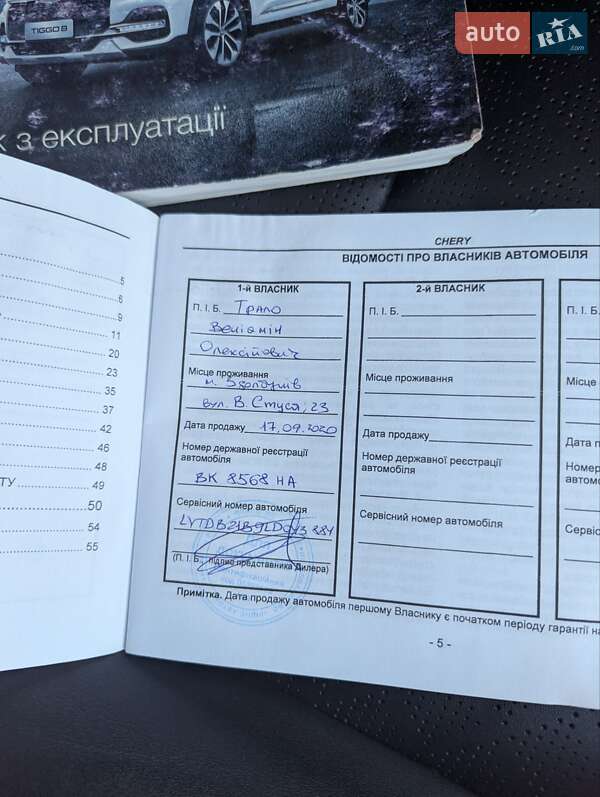 auto RIA.com
TIGGO 8
к з експлуатації
CHERY
ВІДОМОСТІ ПРО ВЛАСНИКІВ АВТОМОБІЛЯ
1-й ВЛАСНИК
П. І. Б. Трало
Веніамін
Олексійович
Місце проживання
м. Здолбунів
вул. В. Стуса, 23
Дата продажу 17.09.2020
Номер державної реєстрації
автомобіля
ВК 8568 НА
Сервісний номер автомобіля
(П. І. Б., підпис представника Дилера)
2-й ВЛАСНИК
П. І. Б.
Місце проживання
Дата продажу
Номер державної реєстрації
автомобіля
Сервісний номер автомобіля
П. І. Б.
Місце
Дата
Номер
автомо
Сервіс
Примітка. Дата продажу автомобіля першому Власнику є початком періоду гарантії на
- 5 -
5
6
9
11
20
23
35
37
42
46
48
ТУ 49
50
54
55